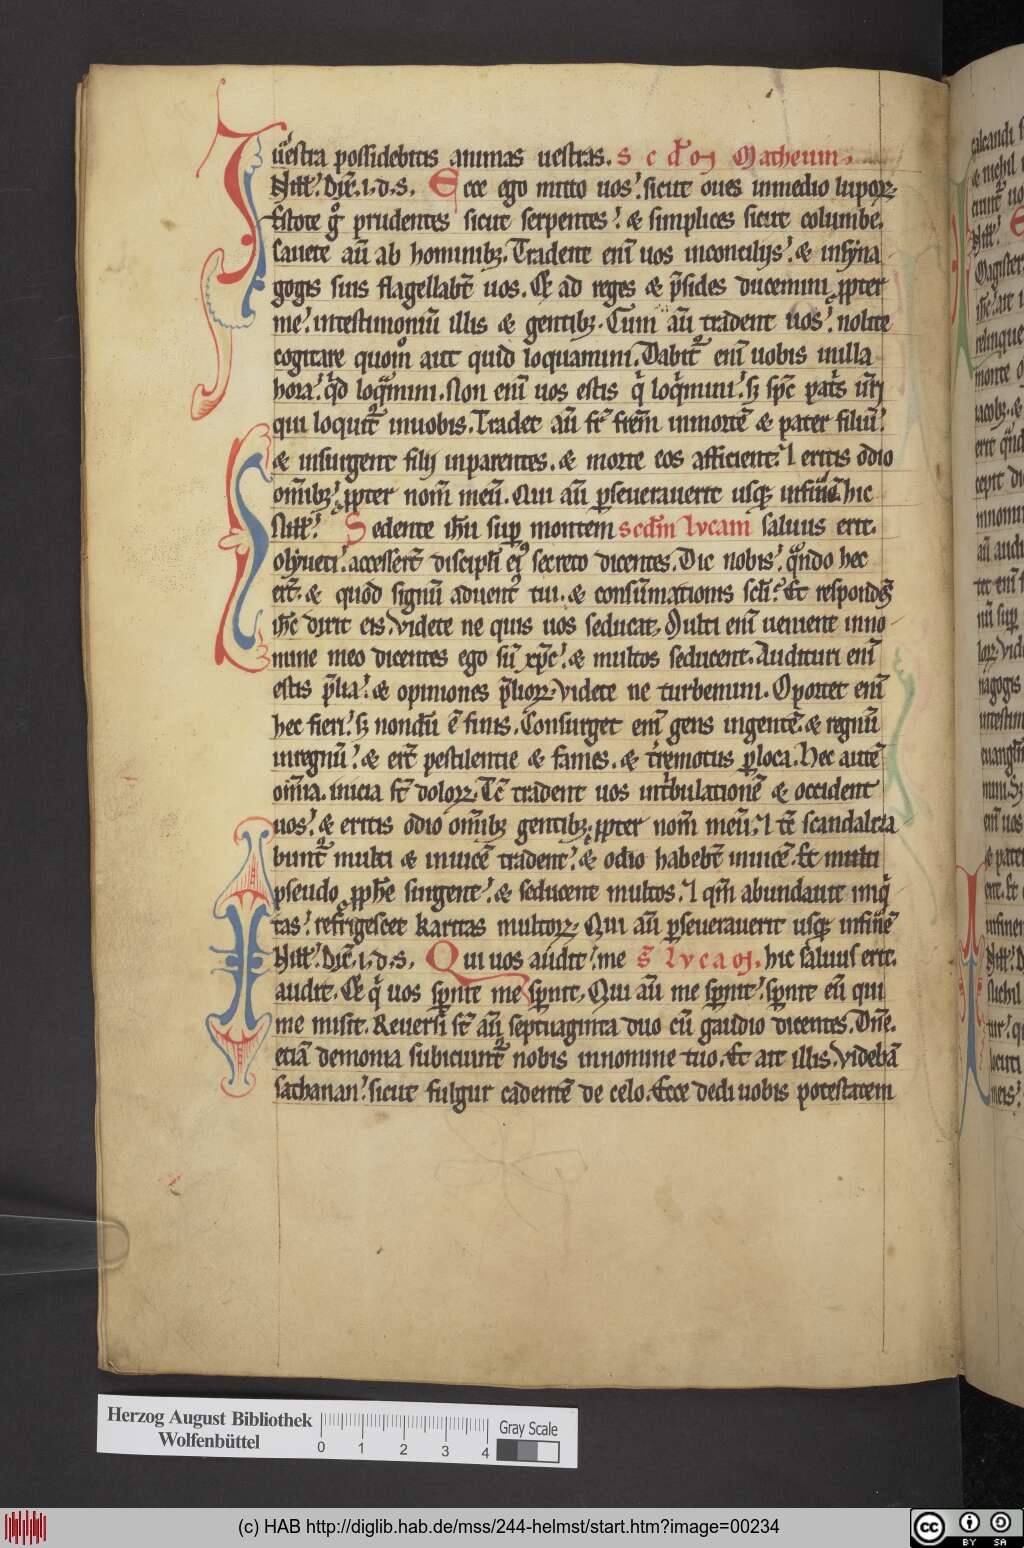 uestra possidebitis animas uestras. S c d'm Matheum.
N ill'. Dix̄. i. d. s. Ecce ego mitto uos. sicut oues inmedio lupoꝝ
Estote g̊ prudentes sicut serpentes. & simplices sicut columbe.
Cauete aū ab hominibꝫ. Tradent enī uos inconciliis. & insyna
gogis suis flagellabt̄ uos. Et ad reges & p̄sides ducemini ꝓpter
me. intestimoniū illis & gentibꝫ. Cum aū tradent uos. nolite
cogitare quom̊ aut quid loquamini. Dabit᷑ enī uobis inilla
hora. qͥd loqͣmini. Non enī uos estis qͥ loqͥmini. sꝫ sp̄c pat̓s ur̄i
qui loquit᷑ inuobis. Tradet aū fr̄ fr̄em inmortē & pater filiū.
& insurgent filij inparentes. & morte eos afficient. I eritis odio
om̄ibꝫ. ꝓpter nom̄ meū. Qui aū ꝑseuerauerit usqꝫ infinē. hic
N ill'. Sedente ih̄u sup montem scd'm lvcam saluus erit.
olyueti. accesserт̄ discipl̓i eiꝰ secreto dicentes. Dic nobis. qͣndo hec
er̄t. & quod signū aduent᷒ tui. & consūmationis scl̓i. Et respondēs
ih̄c dixit eis. Videte ne quis uos seducat. Multi enī uenient inno
mine meo dicentes ego sū xp̄c. & multos seducent. Audituri enī
estis p̄lia. & opiniones p̄lioꝝ. Videte ne turbemini. Oportet enī
hec fieri. sꝫ nondū ē finis. Consurget enī gens ingentē. & regnū
inregnū. & er̄t pestilentie & fames. & t̓remotus ꝑ loca. Hec autē
om̄ia. inicia s̄t doloꝝ. Tc̄ tradent uos int̓bulationē & occident
uos. & eritis odio om̄ibꝫ gentibꝫ. ꝓpter nom̄ meū. I tc̄ scandaliza
bunt᷑ multi & inuicē tradent. & odio habebt̄ inuicē. Et multi
pseudo ꝓphe surgent. & seducent multos. I qm̄ abundauit iniqͥ
tas. refrigescet karitas multoꝝ. Qui aū ꝑseuerauerit usqꝫ infinē
N ill'. Dix̄. i. d. s. Qui uos audit. me s̄ lvcam. hic saluus erit.
audit. Et qͥ uos spnit me spnit. Qui aū me spnit. spnit eū qui
me misit. Reuersi s̄t aū septuaginta duo cū gaudio dicentes. Dn̄e.
etiā demonia subiciunt᷑ nobis innomine tuo. Et ait illis. Videbā
sathanan. sicut fulgur cadentē de celo. Ecce dedi uobis potestatem
Herzog August Bibliothek
Wolfenbüttel
0 1 2 3 4
Gray Scale
(c) HAB http://diglib.hab.de/mss/244-helmst/start.htm?image=00234
cc BY SA